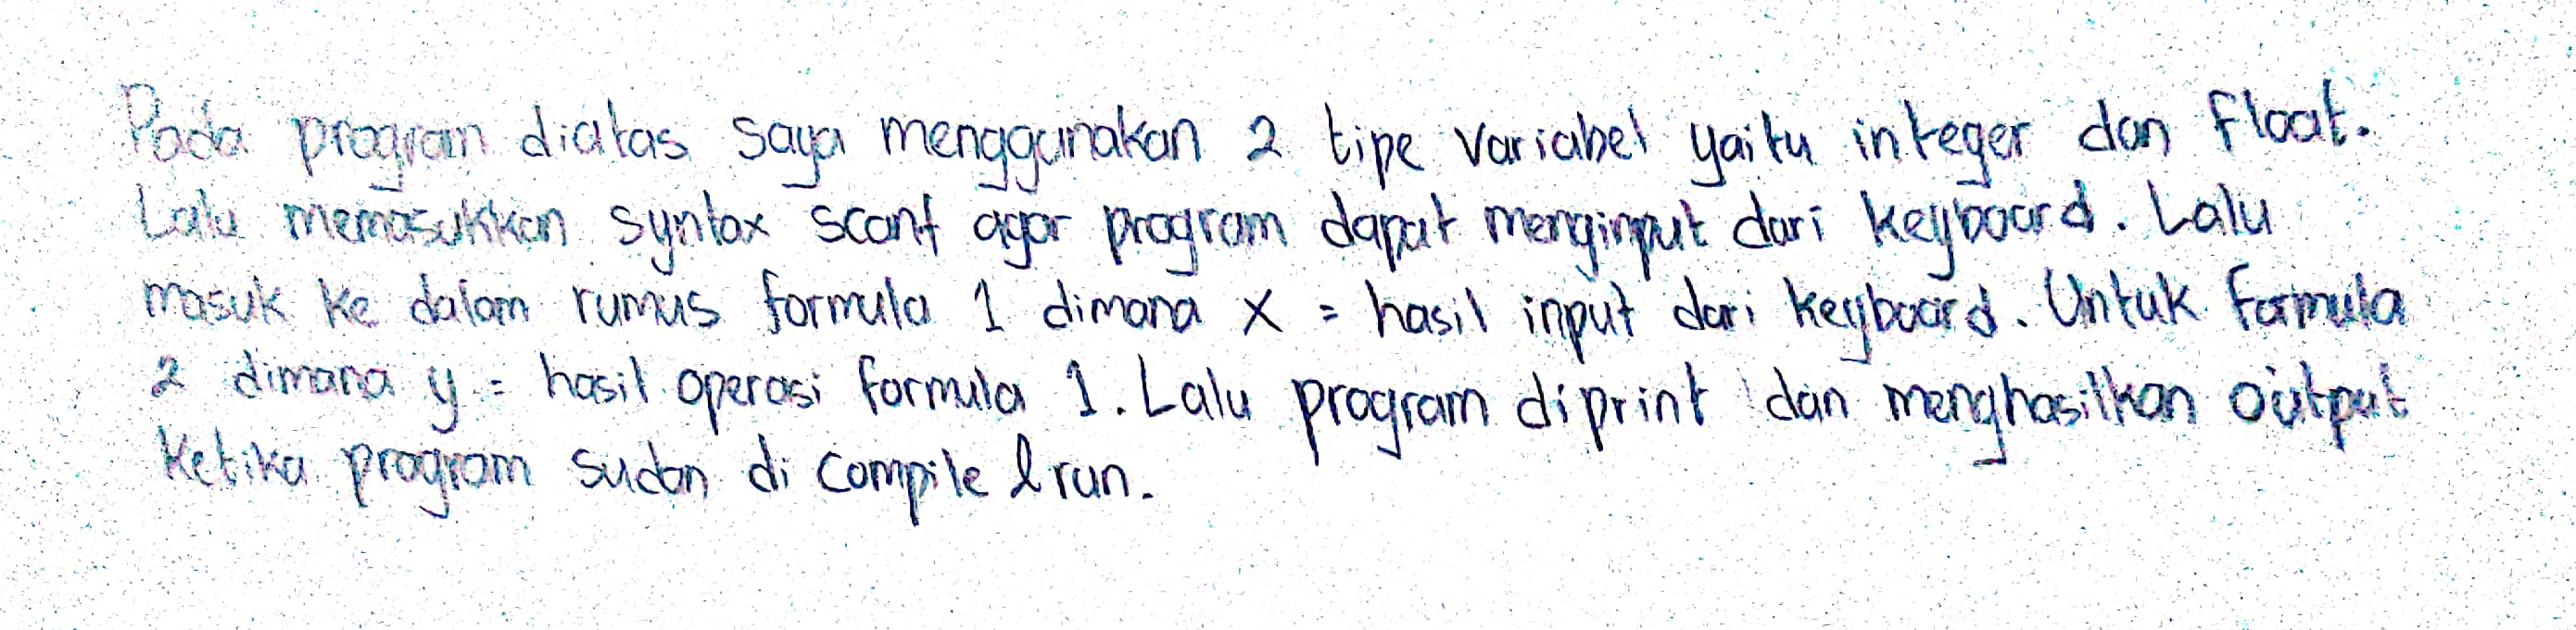 Pada program diatas saya menggunakan 2 tipe variabel yaitu integer dan float.
Lalu memasukkan syntax scanf agar program dapat menginput dari keyboard. Lalu
masuk ke dalam rumus formula 1 dimana x = hasil input dari keyboard. Untuk formula
2 dimana y = hasil operasi formula 1. Lalu program diprint dan menghasilkan output
ketika program sudah di compile & run.